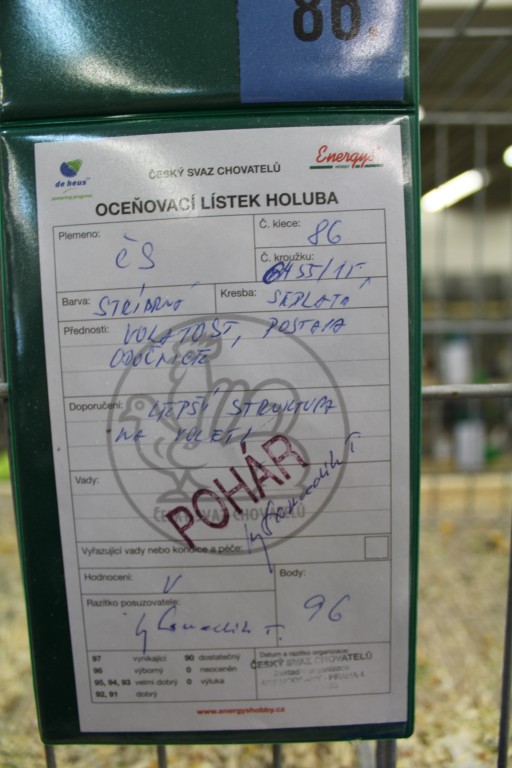 86.
de heus
powering progress
ČESKÝ SVAZ CHOVATELŮ
Energys
HOBBY
OCEŇOVACÍ LÍSTEK HOLUBA
Plemeno: ČS
Č. klece: 86
Č. kroužku:
Barva: STŘÍBRNÁ
Kresba: SEDLATÁ
Přednosti: VOLATOST, POSTAVA
OBOČNICE
Doporučení: LEPŠÍ STRUKTURA
NA VOLETI
Vady:
POHÁR
ČESKÝ SVAZ CHOVATELŮ
Vyřazující vady nebo kondice a péče:
Hodnocení: V
Body: 96
Razítko posuzovatele:
97 vynikající 90 dostatečný
96 výborný 0 neoceněn
95, 94, 93 velmi dobrý 0 výluka
92, 91 dobrý
Datum a razítko organizace:
ČESKÝ SVAZ CHOVATELŮ
Základní organizace
www.energyshobby.cz